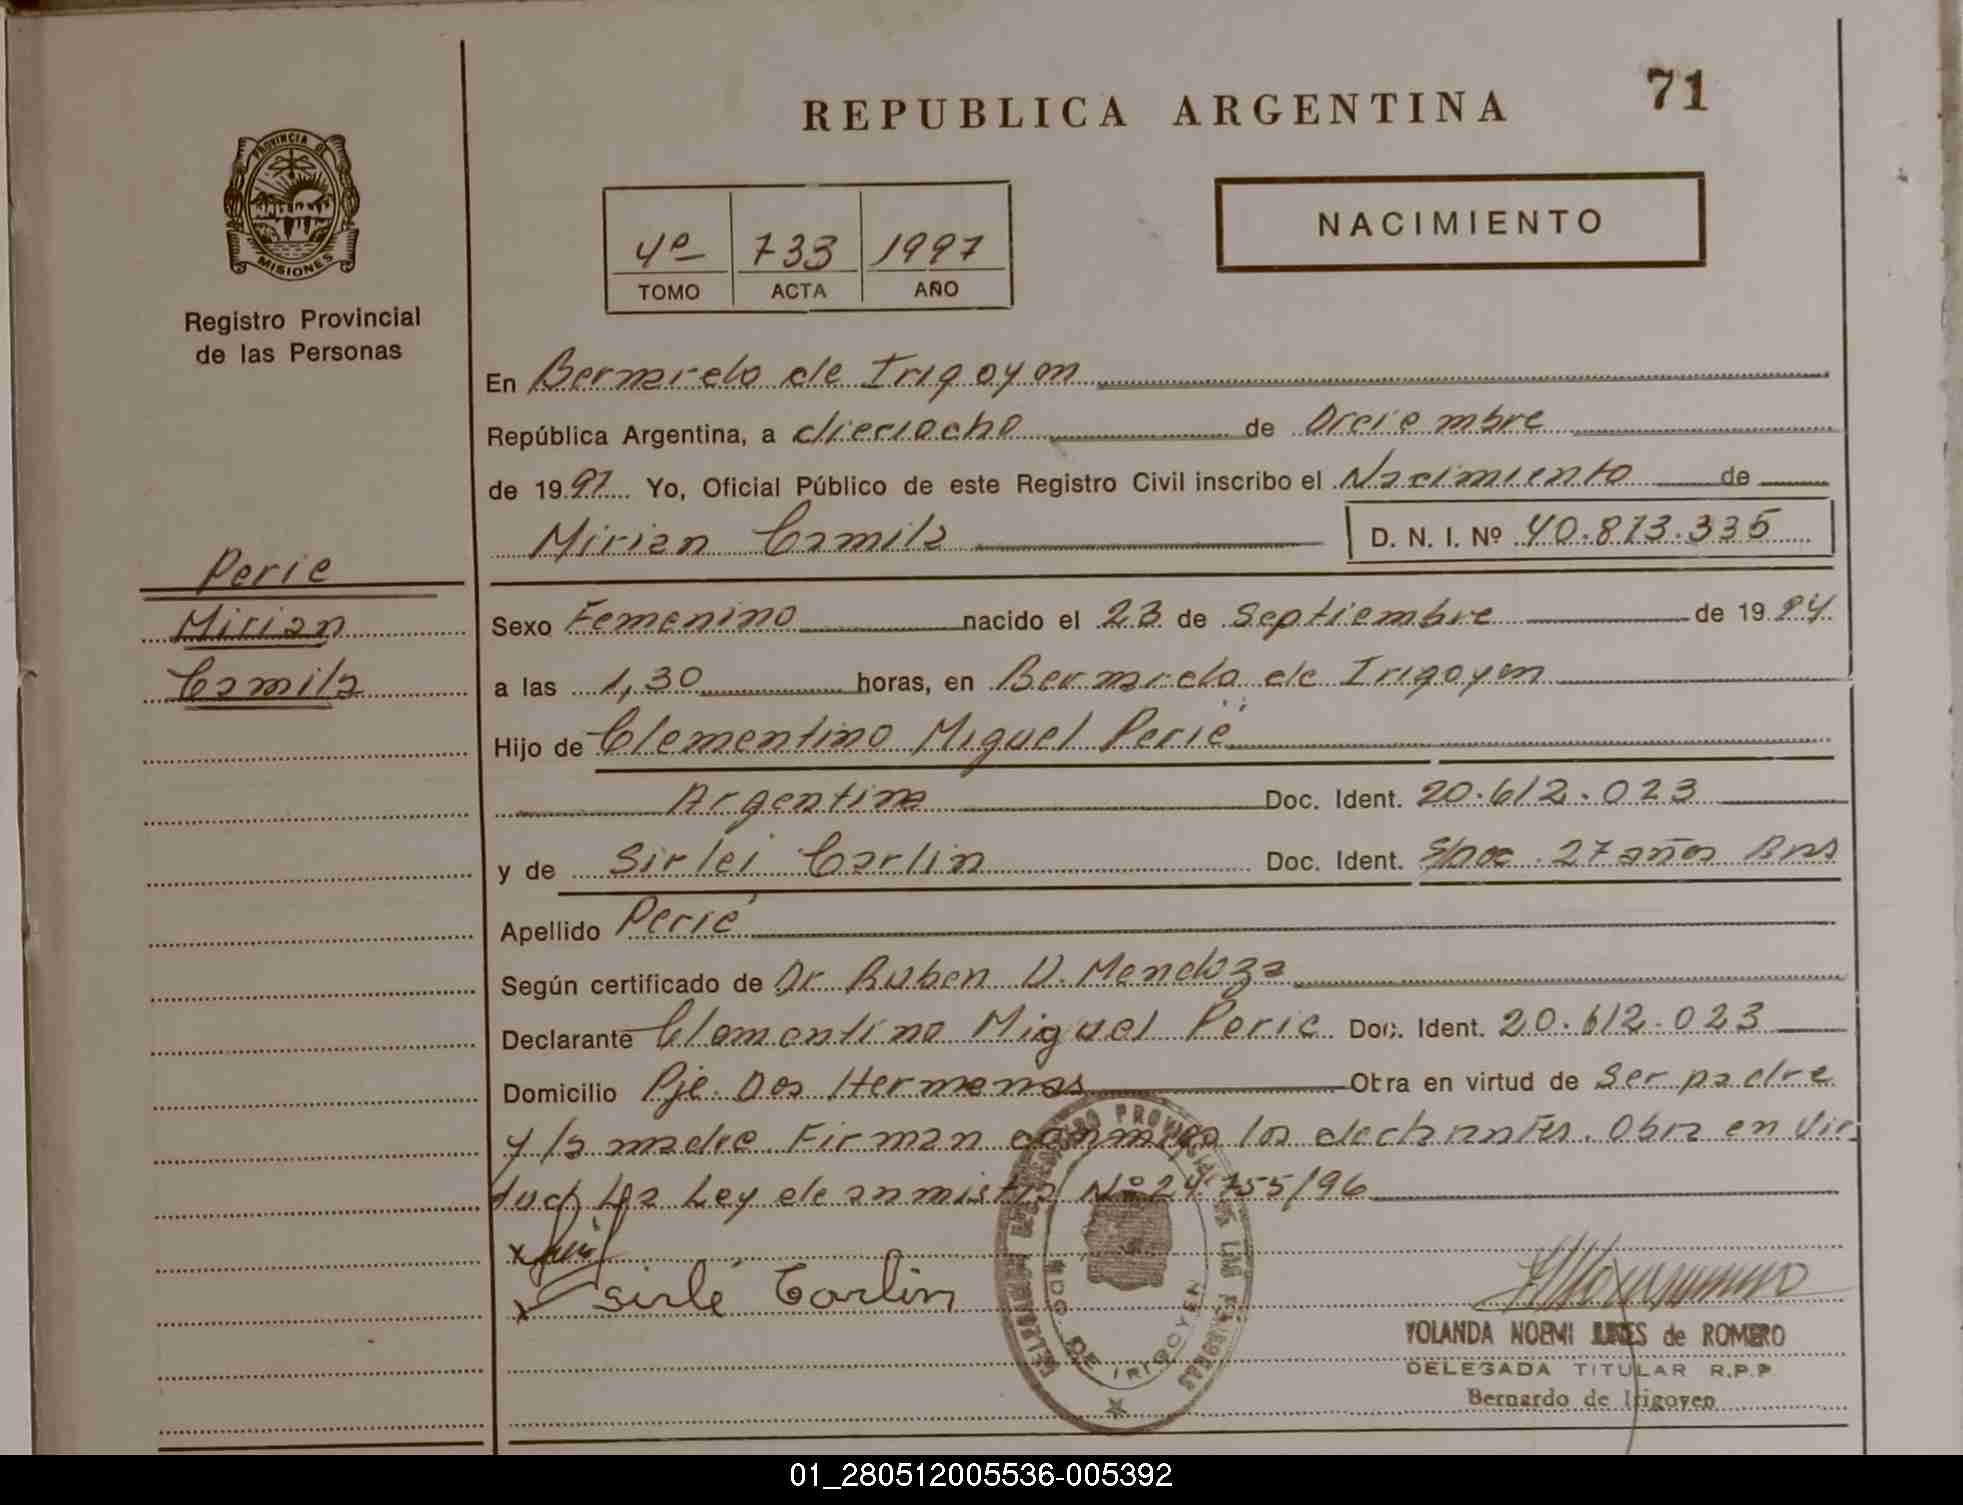 REPUBLICA ARGENTINA
71
PROVINCIA DE
MISIONES
Registro Provincial
de las Personas
4º 733 1997
TOMO ACTA AÑO
NACIMIENTO
En Bernardo de Irigoyen
República Argentina, a dieciocho de Diciembre
de 1997 Yo, Oficial Público de este Registro Civil inscribo el Nacimiento de
Mirian Camila D. N. I. Nº 40.873.335
Perie
Mirian
Camila
Sexo Femenino nacido el 23 de Septiembre de 1994
a las 1,30 horas, en Bernardo de Irigoyen
Hijo de Clementino Miguel Perié
Argentina Doc. Ident. 20.612.023
y de Sirlei Carlin Doc. Ident. S/Doc 27 años Bras
Apellido Perié
Según certificado de Dr Ruben D. Mendoza
Declarante Clementino Miguel Perie Doc. Ident. 20.612.023
Domicilio Pje. Dos Hermanas Obra en virtud de Ser padre
y la madre Firman conmigo los declarantes. Obra en vir
tud La Ley de anmistia Nº 24.755/96
x
x Sirle Carlin
BDO. DE IRIGOYEN
YOLANDA NOEMI de ROMERO
DELEGADA TITULAR R.P.P
Bernardo de Irigoyen
01_280512005536-005392